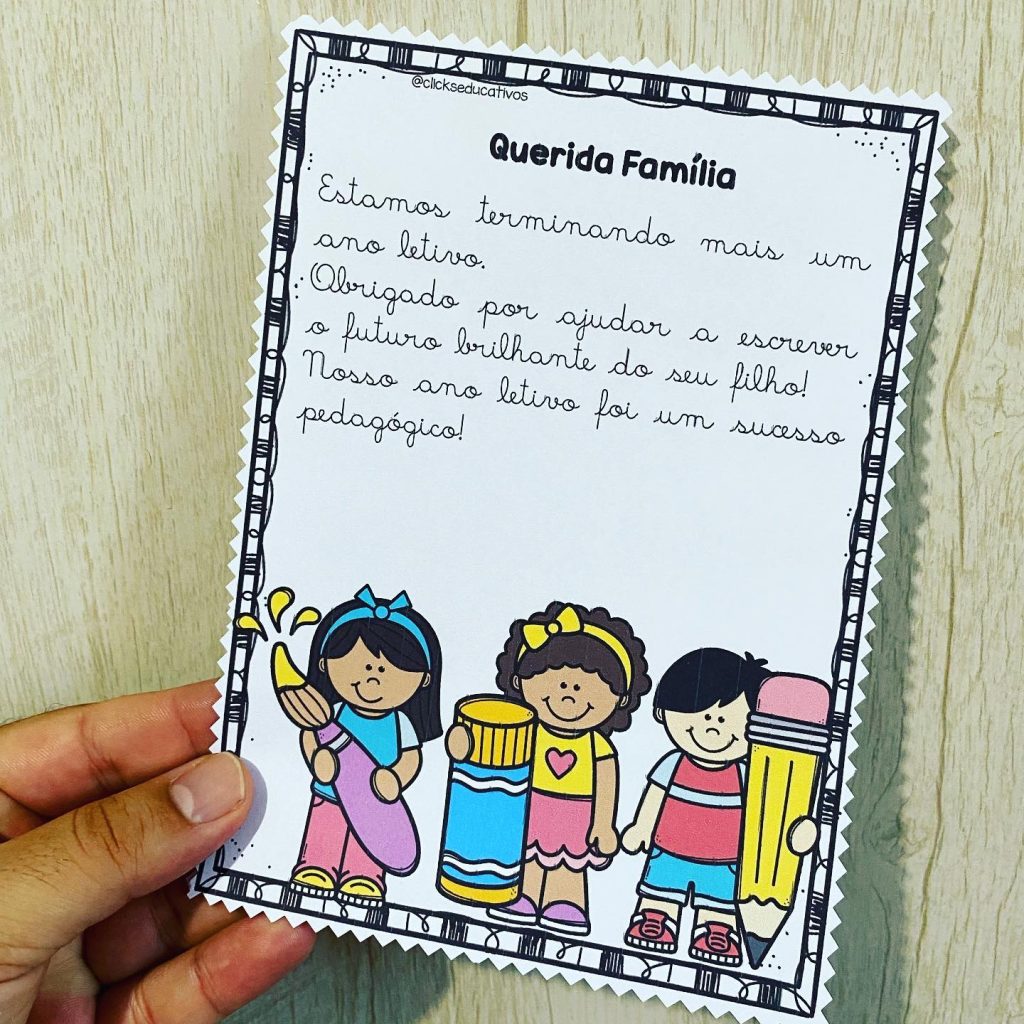 @clickseducativos
Querida Família
Estamos terminando mais um
ano letivo.
Obrigado por ajudar a escrever
o futuro brilhante do seu filho!
Nosso ano letivo foi um sucesso
pedagógico!